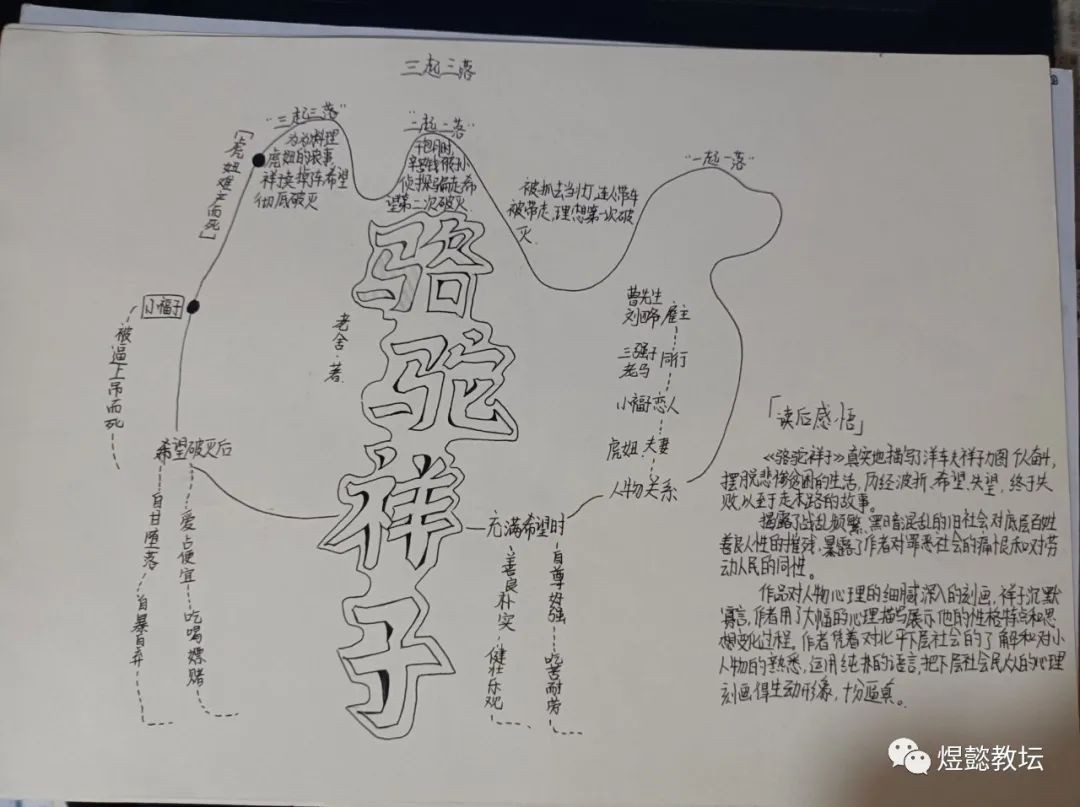 三起三落
"三起三落"
为为料理
虎妞的丧事
祥卖掉车希望
彻底破灭
"二起二落"
干包月时
辛苦钱
侦探骗走希
望第二次破灭.
"一起一落"
被抓去当壮丁,连人带车
被带走,理想第一次破
灭.
[虎妞难产而死]
小福子
被逼上吊而死
骆驼祥子
老舍·著.
曹先生
刘四爷 雇主
三强子
老马 同行
小福子 恋人
虎妞 夫妻
人物关系
希望破灭后
自甘堕落 自暴自弃
爱占便宜 吃喝嫖赌
充满希望时
善良朴实 健壮乐观
自尊好强 吃苦耐劳
「读后感悟」
《骆驼祥子》真实地描写了洋车夫祥子力图奋斗,
摆脱悲惨贫困的生活,历经波折、希望、失望,终于失
败,以至于走末路的故事。
揭露了战乱频繁、黑暗混乱的旧社会对底层百姓
善良人性的摧残,暴露了作者对罪恶社会的痛恨和对劳
动人民的同性。
作品对人物心理的细腻深入的刻画,祥子沉默
寡言,作者用了大幅的心理描写展示他的性格特点和思
想变化过程。作者凭着对北平下层社会的了解和对小
人物的熟悉,运用纯朴的语言,把下层社会民众的心理
刻画得生动形象,十分逼真。
煜懿教坛